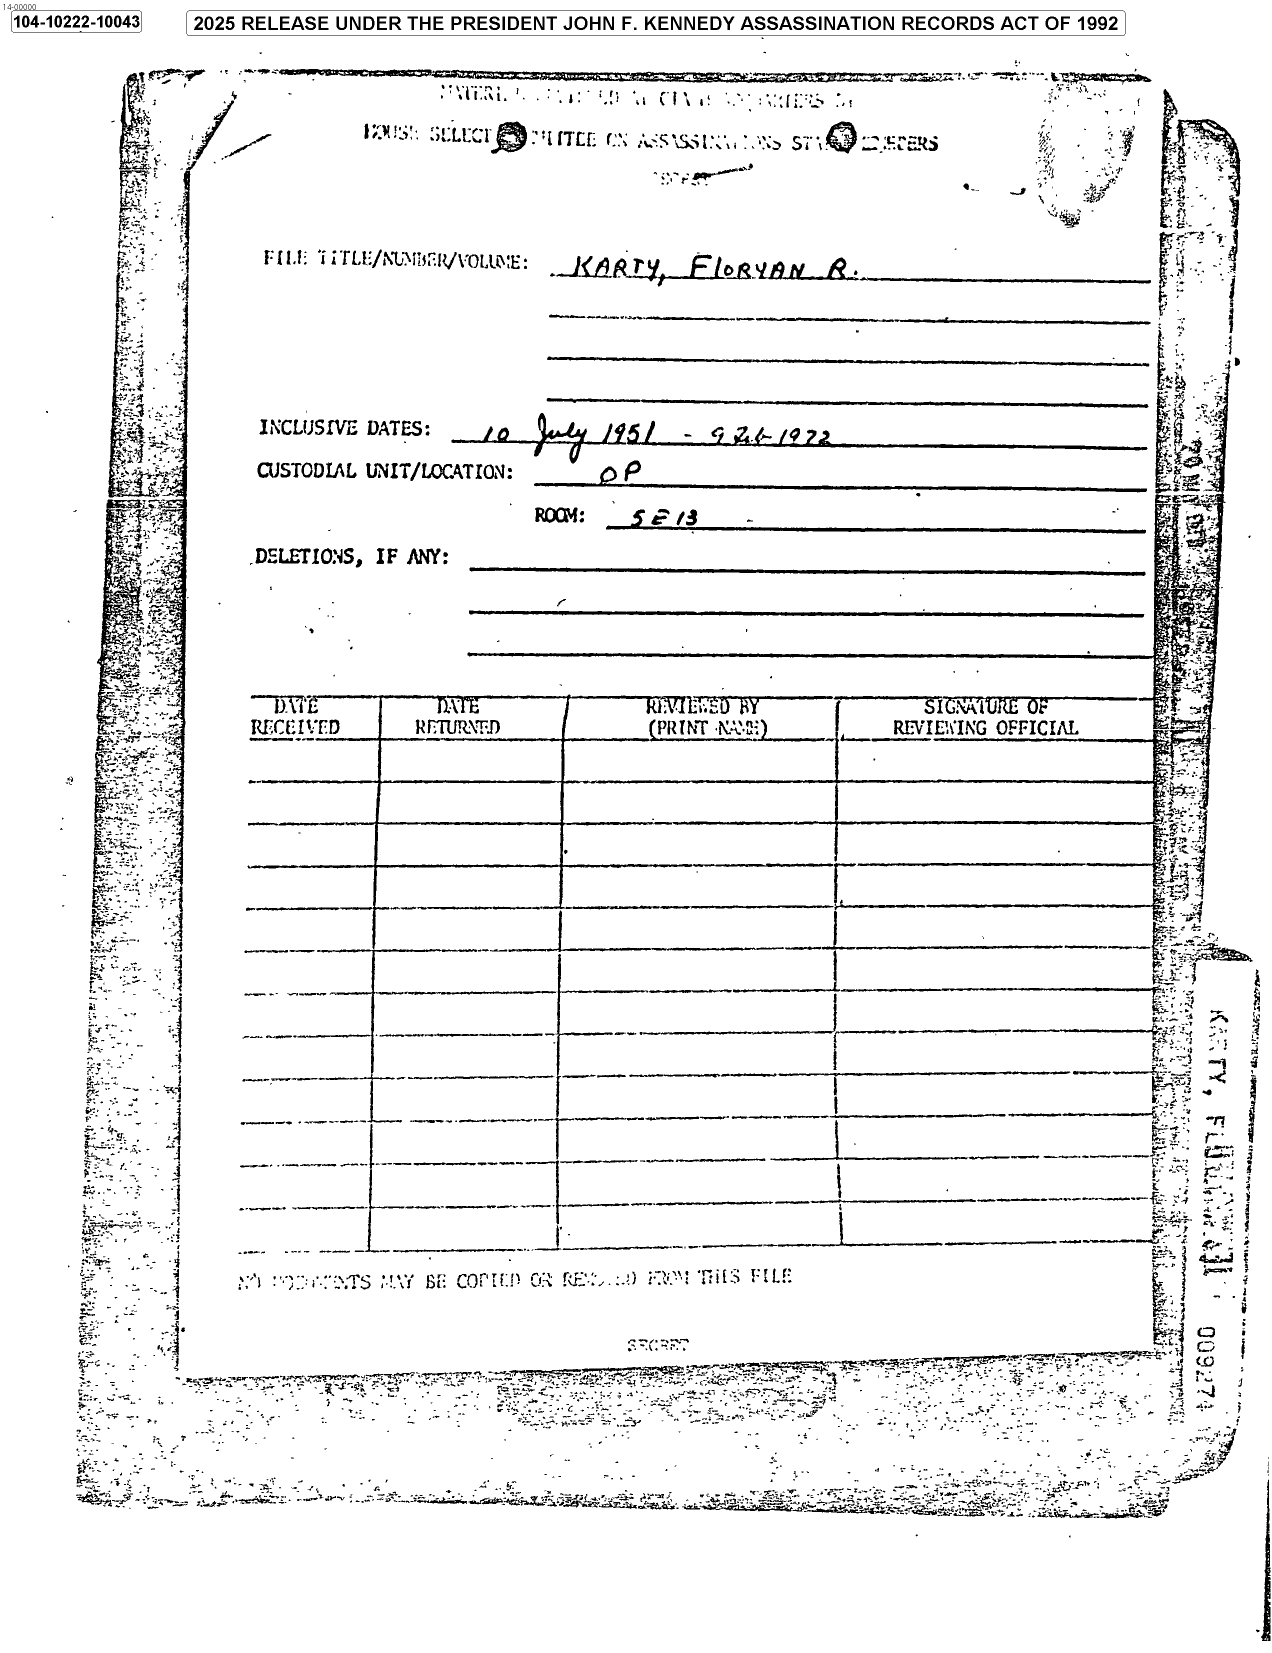 14-00000
104-10222-10043
2025 RELEASE UNDER THE PRESIDENT JOHN F. KENNEDY ASSASSINATION RECORDS ACT OF 1992
AT CIA
HOUSE SELECT ON ASSASSINATIONS MEMBERS
FILE TITLE/NUMBER/VOLUME: KARTY, FLORYAN R.
INCLUSIVE DATES: 10 July 1951 - 9 Feb 1972
CUSTODIAL UNIT/LOCATION: OP
ROOM: 5E13
DELETIONS, IF ANY:
DATE RECEIVED
DATE RETURNED
REVIEWED BY (PRINT NAME)
SIGNATURE OF REVIEWING OFFICIAL
NO DOCUMENTS MAY BE COPIED OR REMOVED FROM THIS FILE
SECRET
KARTY,
009274